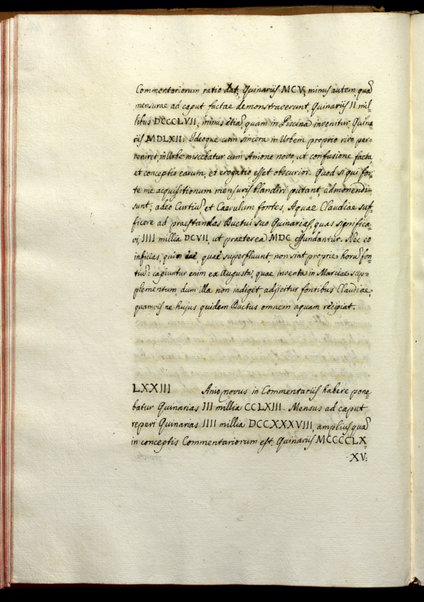 Commentariorum ratio dat, Quinarijs MCV, minus autem quã
mensurae ad caput factae demonstraverunt, Quinarijs II mil
libus DCCCLVII, minus etiã quam in Piscina invenitur, Quina
rijs MDLXII. Ideoque cum sincera in Urbem proprio rivo per
veniret, in Urbe miscebatur cum Anione novo, ut confusione facta
et conceptio earum, et erogatio esset obscurior. Quod si qui for
te me acquisitionum mensuris blandiri putant, admonendi
sunt, adeo Curtiũ et Caerulum fontes, Aquae Claudiae suf
ficere ad praestandas Ductui suo Quinarias, quas significa
vi, IIII millia DCVII, ut praeterea MDC effundantur. Nec eo
inficias, quin eae, quae superfluunt, non sint propriae horũ fon
tiũ: capiuntur enim ex Augusta, quae inventa in Marciae sup
plementum dum illa non indiget, adjicitur fontibus Claudiae,
quamvis ne hujus quidem Ductus omnem aquam recipiat.
LXXIII Anio novus in Commentarijs habere pone
batur Quinarias III millia CCLXIII. Mensus ad caput
reperi Quinarias IIII millia DCCXXXVIII, amplius quã
in conceptis Commentariorum est, Quinarijs MCCCCLX
XV: